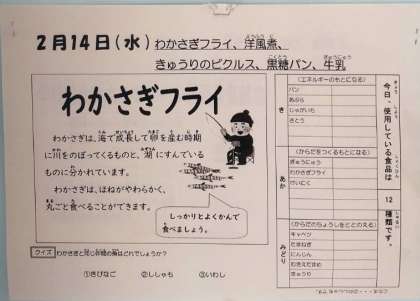 2月14日(水)
わかさぎフライ、洋風煮、
きゅうりのピクルス、黒糖パン、牛乳
わかさぎフライ
わかさぎは、海で成長して卵を産む時期
に川をのぼってくるものと、湖にすんでいる
ものに分かれています。
わかさぎは、ほねがやわらかく、
丸ごと食べることができます。
しっかりとよくかんで
食べましょう。
クイズ わかさぎと同じ仲間の魚はどれでしょうか?
①きびなご ②ししゃも ③いわし
今日、使用している食品は 12 種類です。
き
(エネルギーのもとになる)
パン
あぶら
じゃがいも
さとう
あか
(からだをつくるもとになる)
ぎゅうにゅう
わかさぎフライ
けいにく
みどり
(からだのちょうしをととのえる)
キャベツ
たまねぎ
にんじん
むきえだまめ
きゅうり